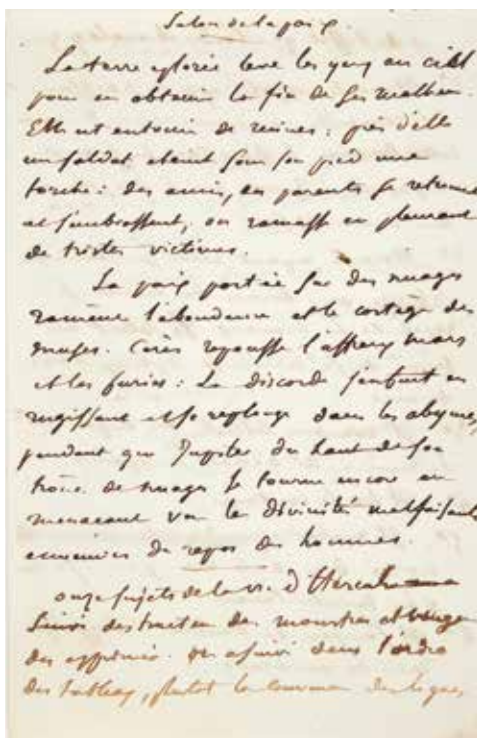 Salon de la paix.
La terre éplorée leve les yeux au ciel
pour en obtenir la fin de ses malheurs.
Elle est entourée de ruines : près d'elle
un soldat eteint sous son pied une
torche : des amis, des parents se retrouvent
et s'embrassent, on ramasse en pleurant
de tristes victimes.
La paix portée sur des nuages
ramène l'abondance et le cortège des
muses. Cérès repousse l'affreux mars
et les furies : La discorde s'enfuit en
rugissant et se replonge dans les abymes,
pendant que Jupiter du haut de son
trône de nuages se tourne encore en
menacant vers les divinités malfaisantes
ennemies du repos des hommes.
onze sujets de la vie d'Hercule
destructeur des monstres et vengeur
des opprimés. on a suivi dans l'ordre
des tableaux, plutot la des lignes